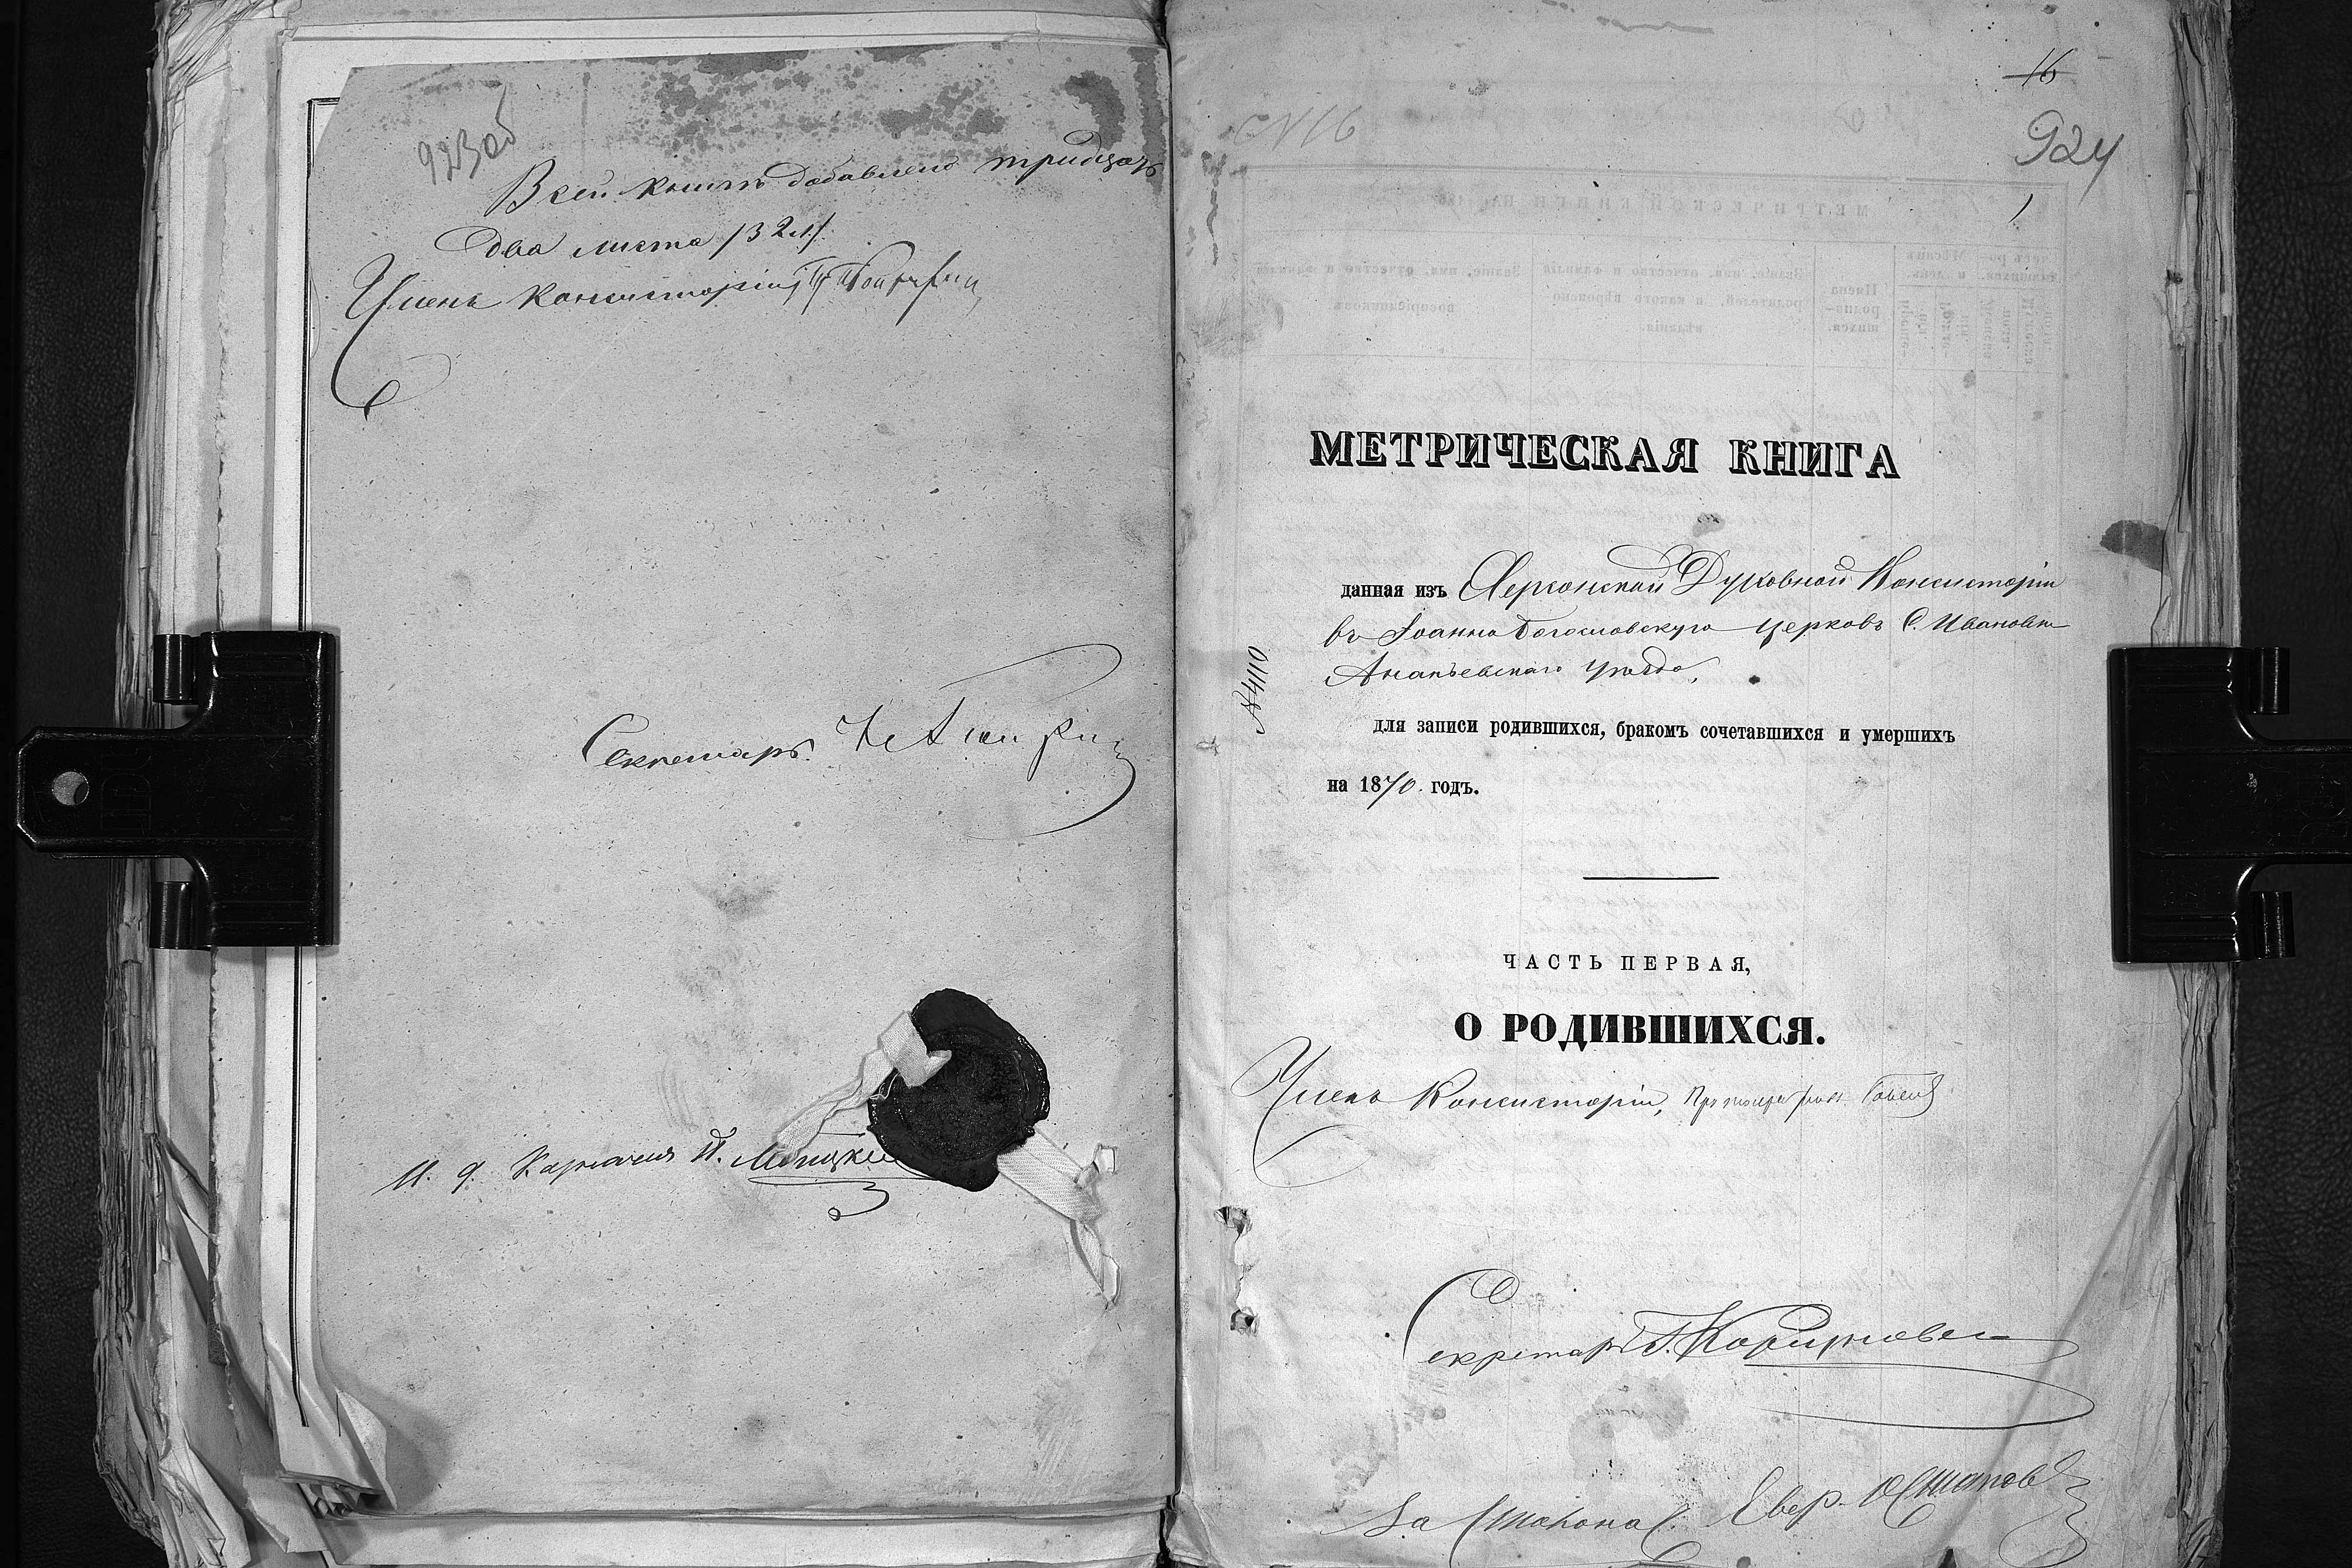 923 об
В сей книгѣ добавлено тридцать
два листа /32 л/.
Членъ Консисторіи, Пр.
Секретарь
И. д. Казначея И.
16
924
N 16
МЕТРИЧЕСКАЯ КНИГА
данная изъ Херсонской Духовной Консисторіи
въ Іоанно Богословскую церковь С. Ивановки
Ананьевскаго уѣзда,
№ 4110
для записи родившихся, бракомъ сочетавшихся и умершихъ
на 1870 годъ.
ЧАСТЬ ПЕРВАЯ,
О РОДИВШИХСЯ.
Членъ Консисторіи, Протоіерей
Секретарь
За Столонач.